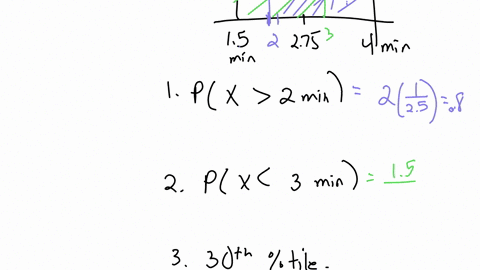 1.5 2 2.75 3 4 min
min
1. P(X > 2 min) = 2(1/2.5) = .8
2. P(X < 3 min) = 1.5
3. 30th %tile.